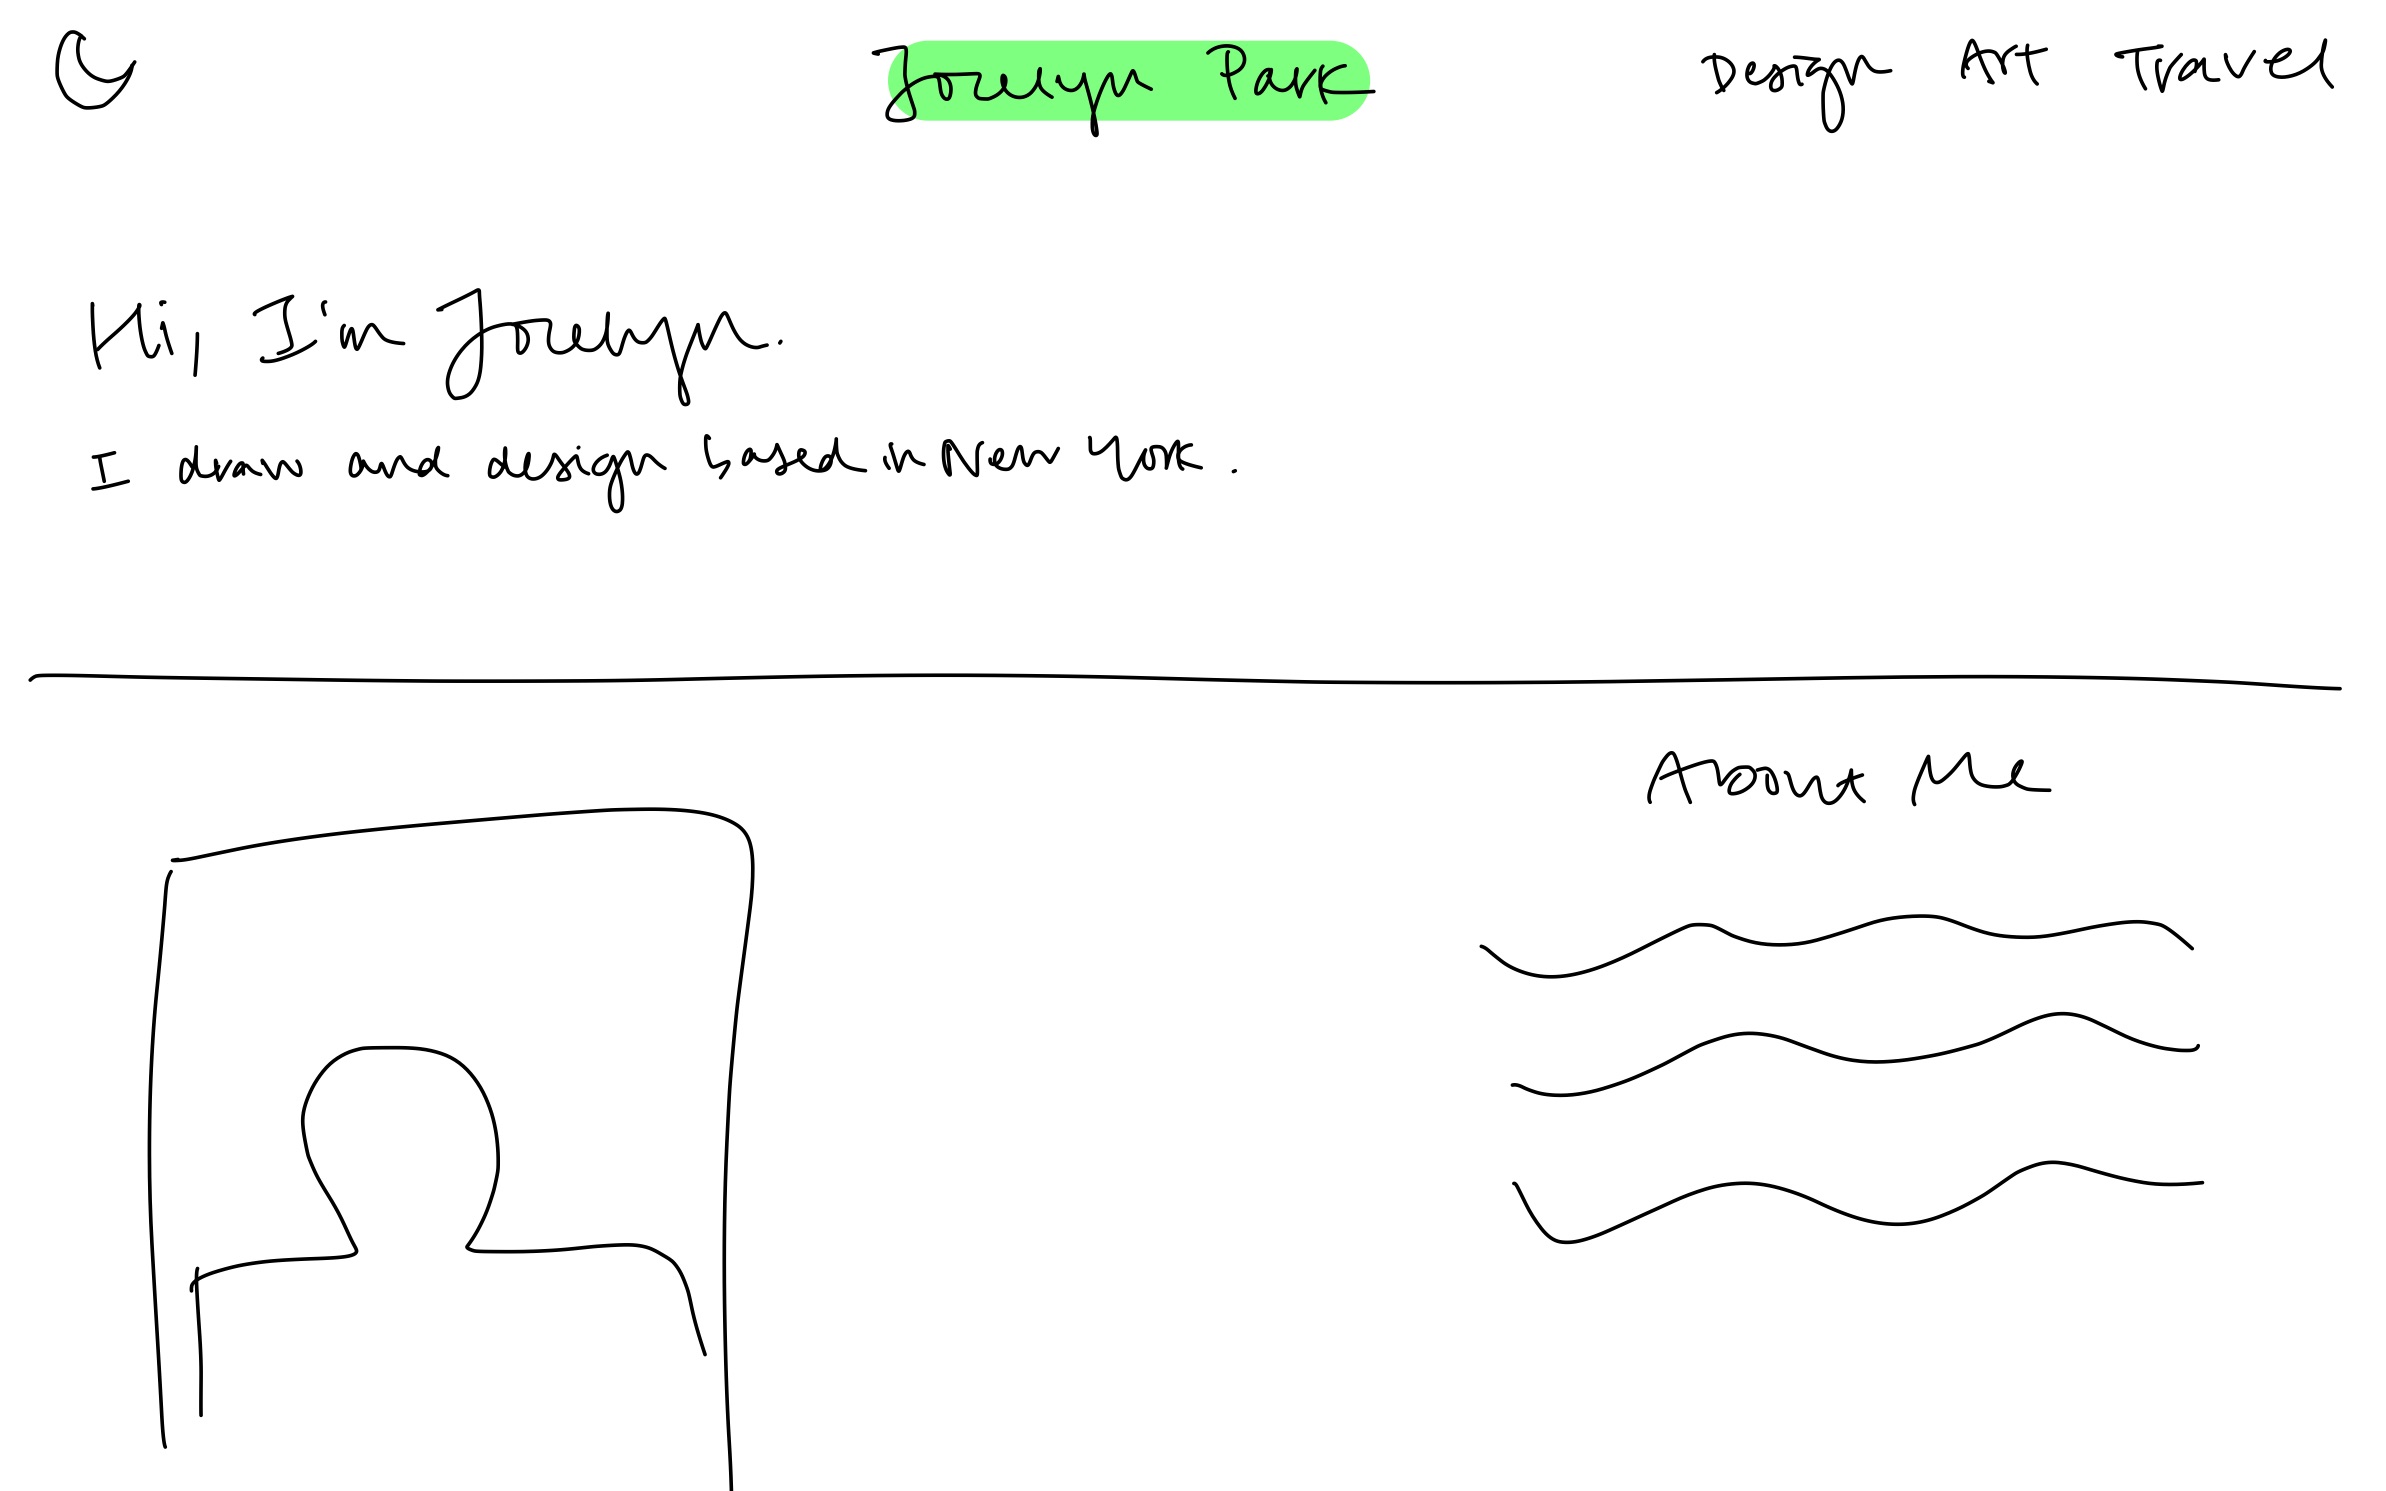 Jocelyn Park
Design Art Travel
Hi, I'm Jocelyn.
I draw and design based in New York.
About Me